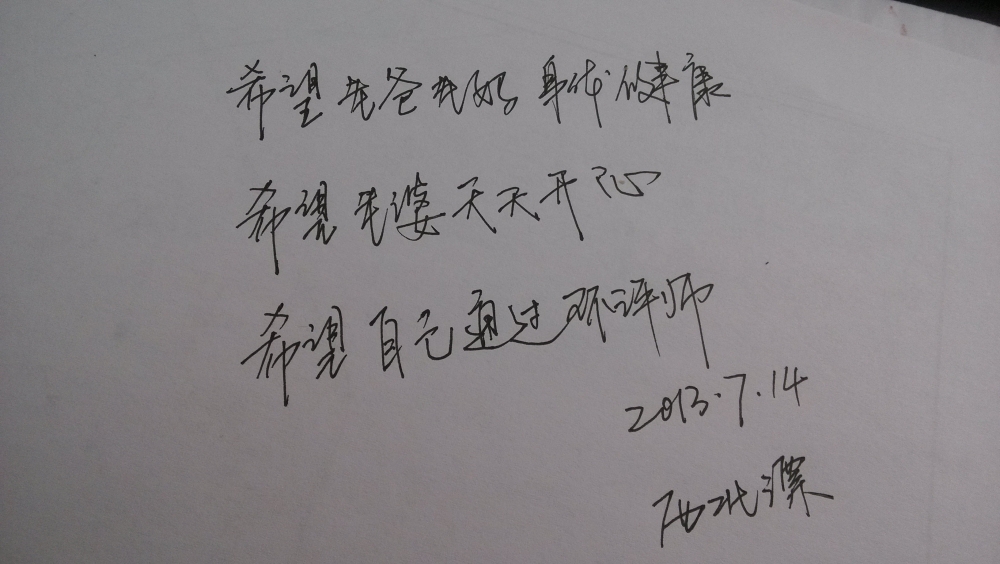 希望老爸老妈身体健康
希望老婆天天开心
希望自己通过环评师
2013.7.14